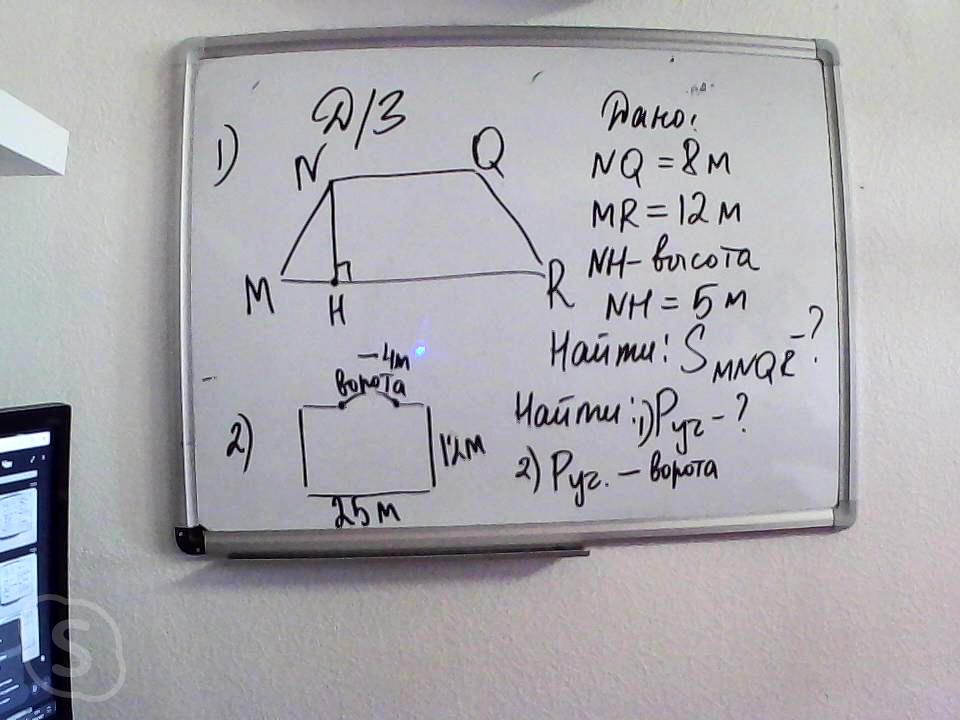 Д/З
1)
N
Q
M
H
R
Дано:
NQ = 8 м
MR = 12 м
NH - высота
NH = 5 м
Найти: S MNQR - ?
2)
- 4м
ворота
12м
25 м
Найти: 1) Pуч - ?
2) Pуч. - ворота
S